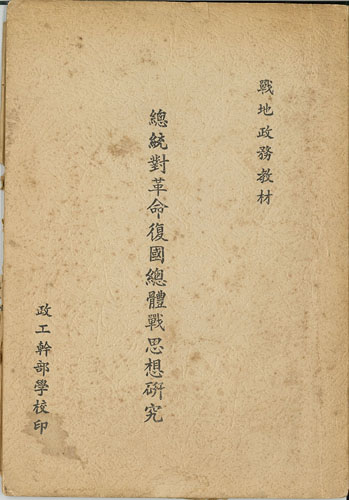 戰地政務教材
總統對革命復國總體戰思想研究
政工幹部學校印